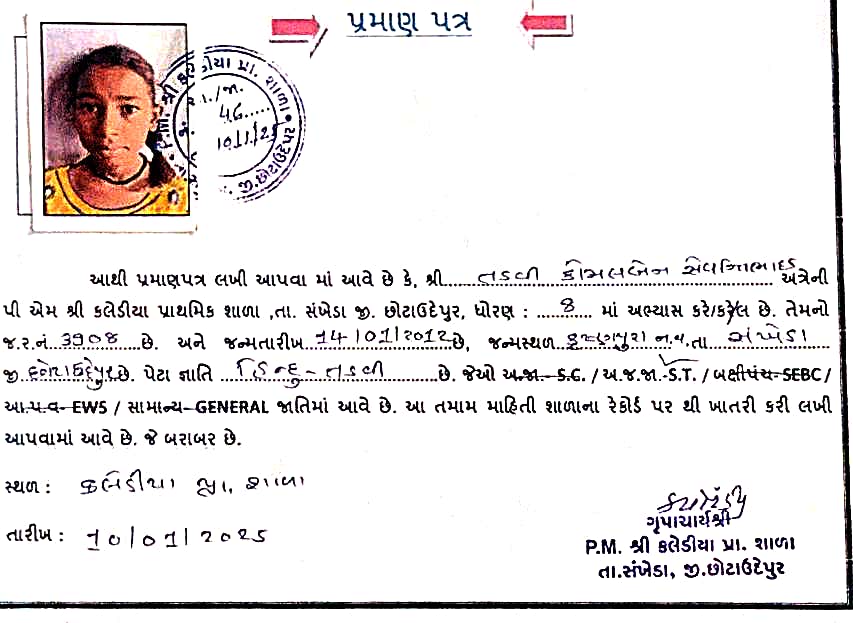 પ્રમાણ પત્ર
P.M. શ્રી કલેડીયા પ્રા. શાળા
જા.
46
10/1/25
જી.છોટાઉદેપુર
આથી પ્રમાણપત્ર લખી આપવા માં આવે છે કે, શ્રી. તડવી કોમલબેન અત્રેની
પી એમ શ્રી કલેડીયા પ્રાથમિક શાળા ,તા. સંખેડા જી. છોટાઉદેપુર, ધોરણ : 8 માં અભ્યાસ કરે/કરેલ છે. તેમનો
જ.ર.નં ૩૧૦૪ છે. અને જન્મતારીખ 14/01/2012 છે, જન્મસ્થળ ન.વ. તા સંખેડા
જી. છોટાઉદેપુર છે. પેટા જ્ઞાતિ હિન્દુ-તડવી છે. જેઓ અ.જા.-S.C. / અ.જ.જા.-S.T. / બક્ષીપંચ-SEBC /
આ.પ.વ-EWS / સામાન્ય-GENERAL જાતિમાં આવે છે. આ તમામ માહિતી શાળાના રેકોર્ડ પર થી ખાતરી કરી લખી
આપવામાં આવે છે. જે બરાબર છે.
સ્થળ : કલેડીયા પ્રા. શાળા
તારીખ : 10/01/2025
ગૃપાચાર્યશ્રી
P.M. શ્રી કલેડીયા પ્રા. શાળા
તા.સંખેડા, જી.છોટાઉદેપુર